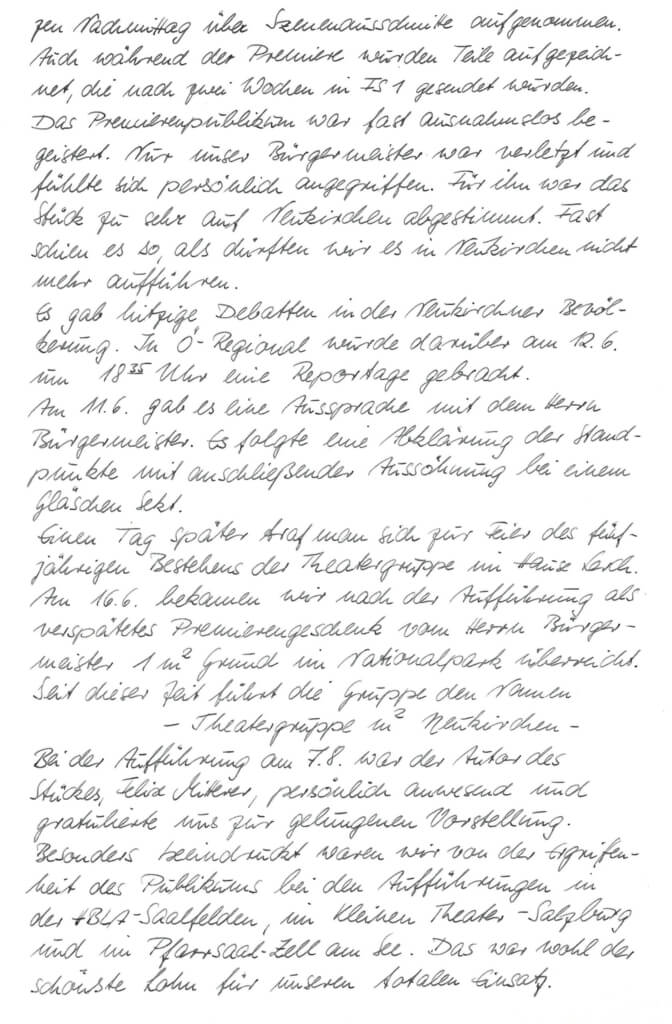 zen Nachmittag über Szenenausschnitte aufgenommen.
Auch während der Premiere wurden Teile aufgezeich-
net, die nach zwei Wochen in FS 1 gesendet wurden.
Das Premierenpublikum war fast ausnahmslos be-
geistert. Nur unser Bürgermeister war verletzt und
fühlte sich persönlich angegriffen. Für ihn war das
Stück zu sehr auf Neukirchen abgestimmt. Fast
schien es so, als dürften wir es in Neukirchen nicht
mehr aufführen.
Es gab hitzige Debatten in der Neukirchner Bevöl-
kerung. In Ö-Regional wurde darüber am 12.6.
um 18³⁵ Uhr eine Reportage gebracht.
Am 11.6. gab es eine Aussprache mit dem Herrn
Bürgermeister. Es folgte eine Abklärung der Stand-
punkte mit anschließender Aussöhnung bei einem
Gläschen Sekt.
Einen Tag später traf man sich zur Feier des fünf-
jährigen Bestehens der Theatergruppe im Hause Lerch.
Am 16.6. bekamen wir nach der Aufführung als
verspätetes Premierengeschenk vom Herrn Bürger-
meister 1 m² Grund im Nationalpark überreicht.
Seit dieser Zeit führt die Gruppe den Namen
– Theatergruppe m² Neukirchen –
Bei der Aufführung am 7.8. war der Autor des
Stückes, Felix Mitterer, persönlich anwesend und
gratulierte uns zur gelungenen Vorstellung.
Besonders beeindruckt waren wir von der Ergriffen-
heit des Publikums bei den Aufführungen in
der HBLA-Saalfelden, im Kleinen Theater-Salzburg
und im Pfarrsaal-Zell am See. Das war wohl der
schönste Lohn für unseren totalen Einsatz.